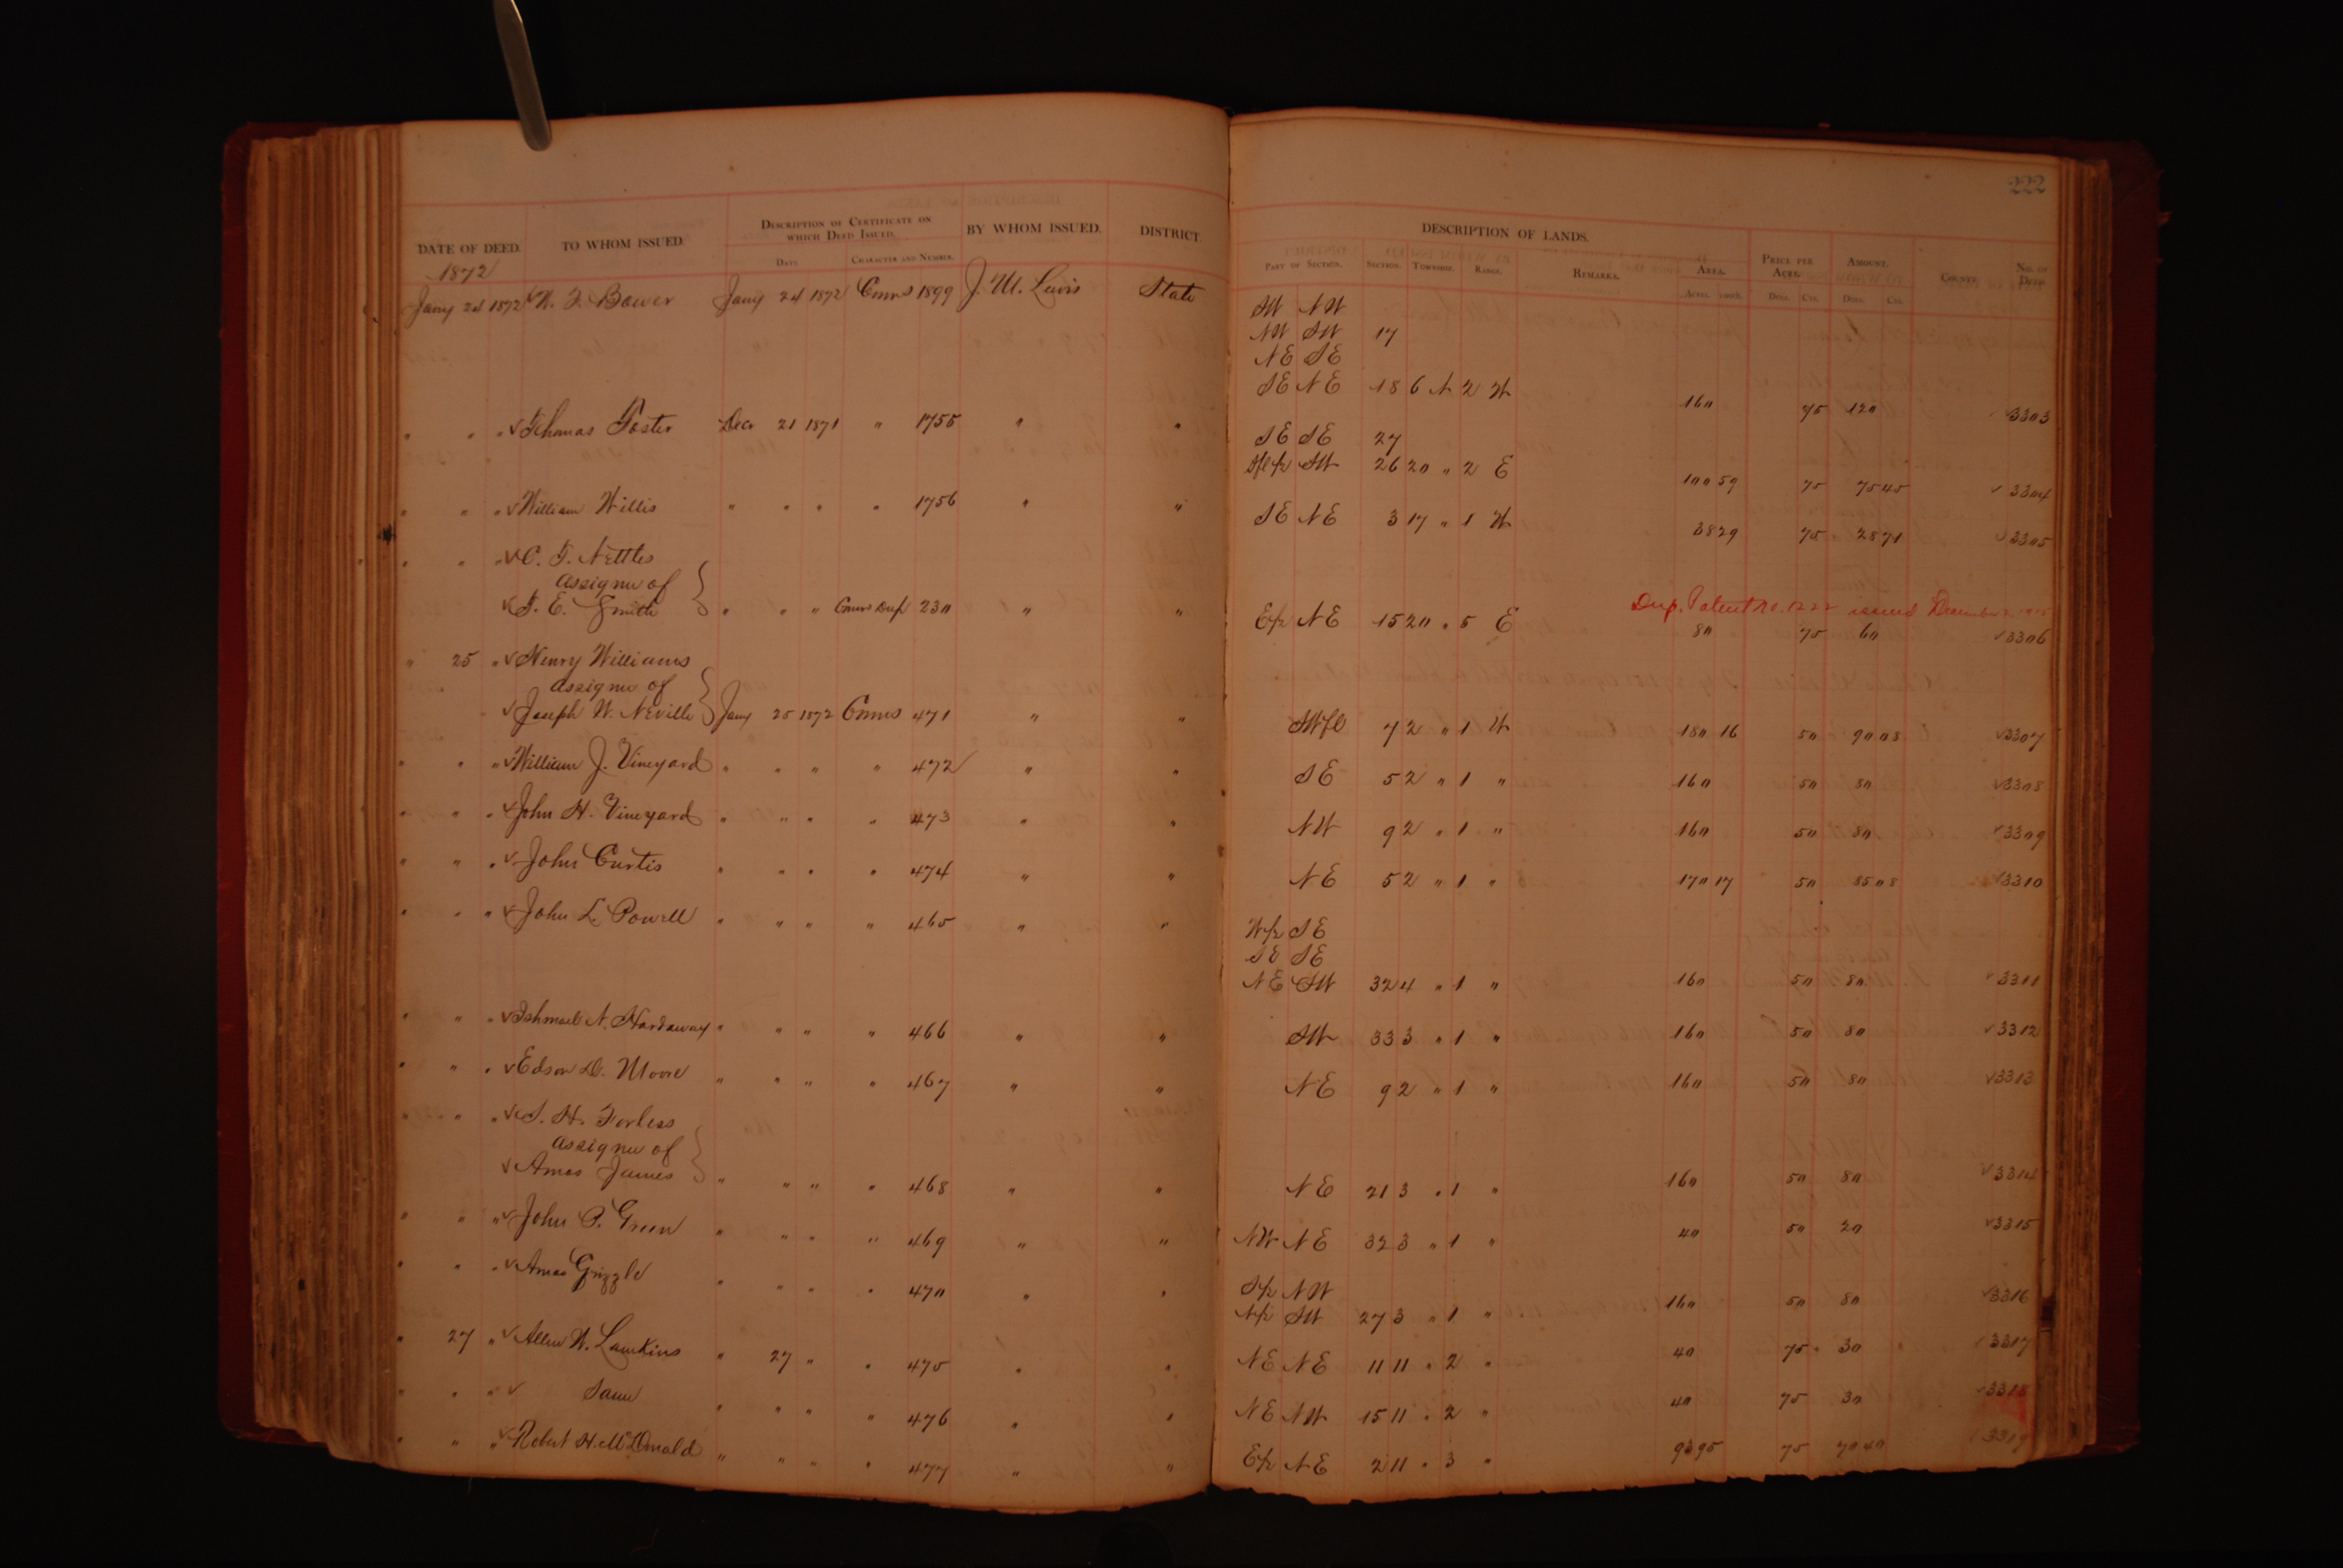 222
DATE OF DEED. TO WHOM ISSUED. DESCRIPTION OF CERTIFICATE ON WHICH DEED ISSUED. BY WHOM ISSUED. DISTRICT. DESCRIPTION OF LANDS. PRICE PER ACRE. AMOUNT. COUNTY. NO. OF DEED.
DATE CHARACTER AND NUMBER. PART OF SECTION. SECTION. TOWNSHIP. RANGE. REMARKS. AREA.
ACRES. 100TH. DOLS. CTS. DOLS. CTS.
1872
Jany 24 1872 ✓ W. F. Bower Jany 24 1872 Comrs 1899 J. M. Lewis State SW NW
NW SW 17
NE SE
SE NE 18 6 N 2 W 160 75 120 ✓3303
" " " ✓ Thomas Foster Decr 21 1871 " 1755 " " SE SE 27
Sfl½ SW 26 20 " 2 E 100 59 75 75 45 ✓ 3304
" " " ✓ William Willis " " " " 1756 " " SE NE 3 17 " 1 W 38 29 75 28 71 ✓ 3305
" " " ✓ C. F. Nettles
assignee of
✓ T. E. Smith " " " Comrs Dup 230 " " E½ NE 15 20 " 5 E Dup. Patent No. 1222 issued December 2, 1905
80 75 60 ✓3306
" 25 " ✓ Henry Williams
assignee of
✓ Joseph W. Neville Jany 25 1872 Comrs 471 " " SWfl 7 2 " 1 W 180 16 50 90 08 ✓3307
" " " ✓ William J. Vineyard " " " " 472 " " SE 5 2 " 1 " 160 50 80 ✓3308
" " " ✓ John H. Vineyard " " " " 473 " " NW 9 2 " 1 " 160 50 80 ✓3309
" " " ✓ John Curtis " " " " 474 " " NE 5 2 " 1 " 170 17 50 85 08 ✓3310
" " " ✓ John L. Powell " " " " 465 " " W½ SE
SE SE
NE SW 32 4 " 1 " 160 50 80 ✓ 3311
" " " ✓ Ishmael N. Hardaway " " " " 466 " " SW 33 3 " 1 " 160 50 80 ✓ 3312
" " " ✓ Edson D. Moore " " " " 467 " " NE 9 2 " 1 " 160 50 80 ✓3313
" " " ✓ S. H. Forbess
assignee of
✓ Amos James " " " " 468 " " NE 21 3 " 1 " 160 50 80 ✓3314
" " " ✓ John P. Green " " " " 469 " " NW NE 32 3 " 1 " 40 50 20 ✓3315
" " " ✓ Amos Grizzle " " " " 470 " " S½ NW
N½ SW 27 3 " 1 " 160 50 80 ✓3316
" 27 " ✓ Allen W. Lamkins " 27 " " 475 " " NE NE 11 11 " 2 " 40 75 30 3317
" " " ✓ Same " " " " 476 " " NE NW 15 11 " 2 " 40 75 30 3318
" " " ✓ Robert H. McDonald " " " " 477 " " E½ NE 2 11 " 3 " 93 95 75 70 40 3319